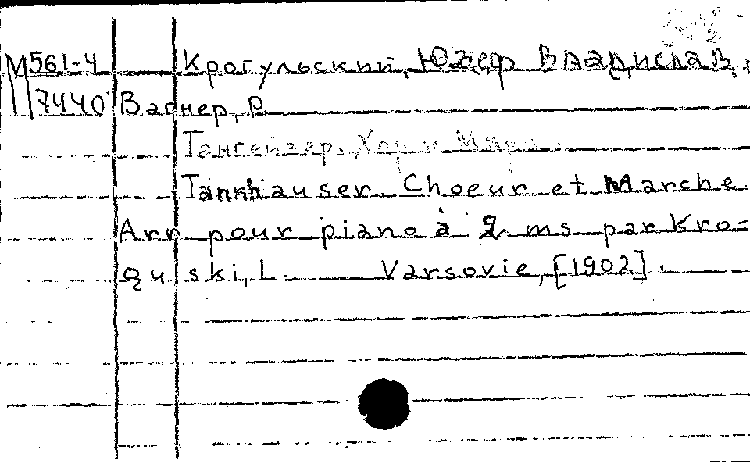 М561-4 Крогульский, Южеф Владислав,
7440 Вагнер, Р
Тангейзер. Хор и Марш.
Tannhauser. Choeur et Marche
Arr pour piano à 2 ms par Kro-
gulski, L. Varsovie, [1902].